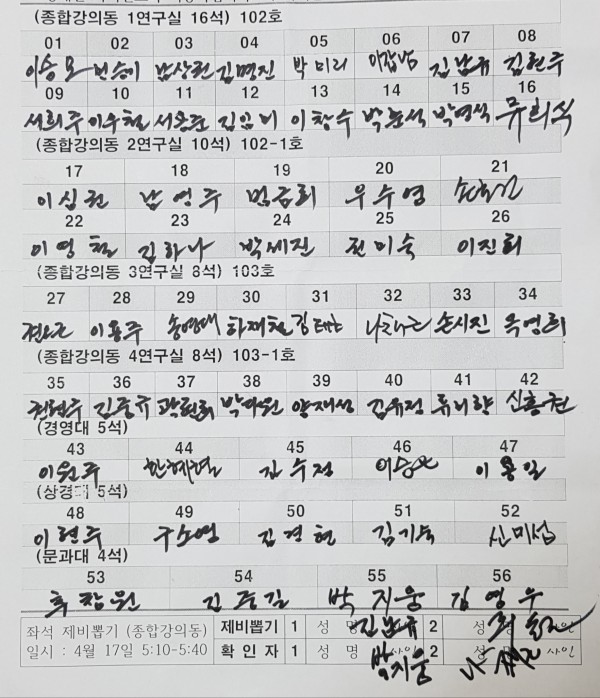 (종합강의동 1연구실 16석) 102호
01 02 03 04 05 06 07 08
이승모 변승이 남상원 김명진 박미리 이갑남 김남규 김현주
09 10 11 12 13 14 15 16
서희주 이우철 서용준 김임미 이창수 박춘석 박영석 류희식
(종합강의동 2연구실 10석) 102-1호
17 18 19 20 21
이심권 남영주 명금희 우수영
22 23 24 25 26
이영철 김하나 박세진 전미숙 이진희
(종합강의동 3연구실 8석) 103호
27 28 29 30 31 32 33 34
이용주 송영대 하재철 손시진 옥영희
(종합강의동 4연구실 8석) 103-1호
35 36 37 38 39 40 41 42
권현주 김중규 곽현희 박아원 양재성 김유정 류미향 신홍권
(경영대 5석)
43 44 45 46 47
이원주 한혜련 김수정 이용일
(상경대 5석)
48 49 50 51 52
이현주 구소영 김경현 김기숙 신미섭
(문과대 4석)
53 54 55 56
최창원 김동길 박지웅 김영우
좌석 제비뽑기 (종합강의동) 제비뽑기 1 성명 김남규 2 성 사인
일시 : 4월 17일 5:10-5:40 확인자 1 성명 박지웅 사인 2 성 사인